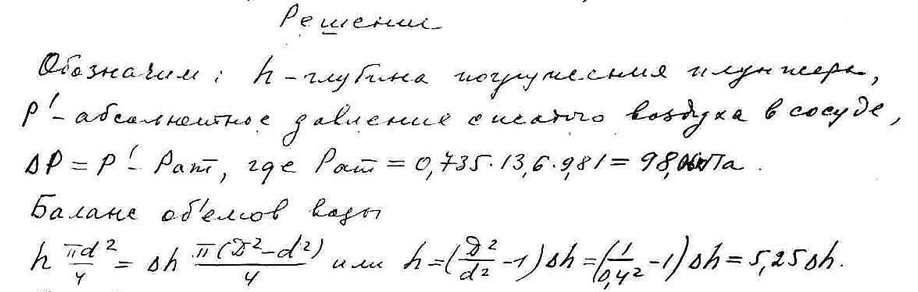 Решение
Обозначим: h – глубина погружения плунжера,
P' – абсолютное давление сжатого воздуха в сосуде,
ΔP = P' – Pат, где Pат = 0,735·13,6·9,81 = 98,0кПа.
Баланс об'емов воды
h πd²/4 = Δh π(D²–d²)/4 или h = (D²/d² – 1)Δh = (1/0,4² – 1)Δh = 5,25Δh.